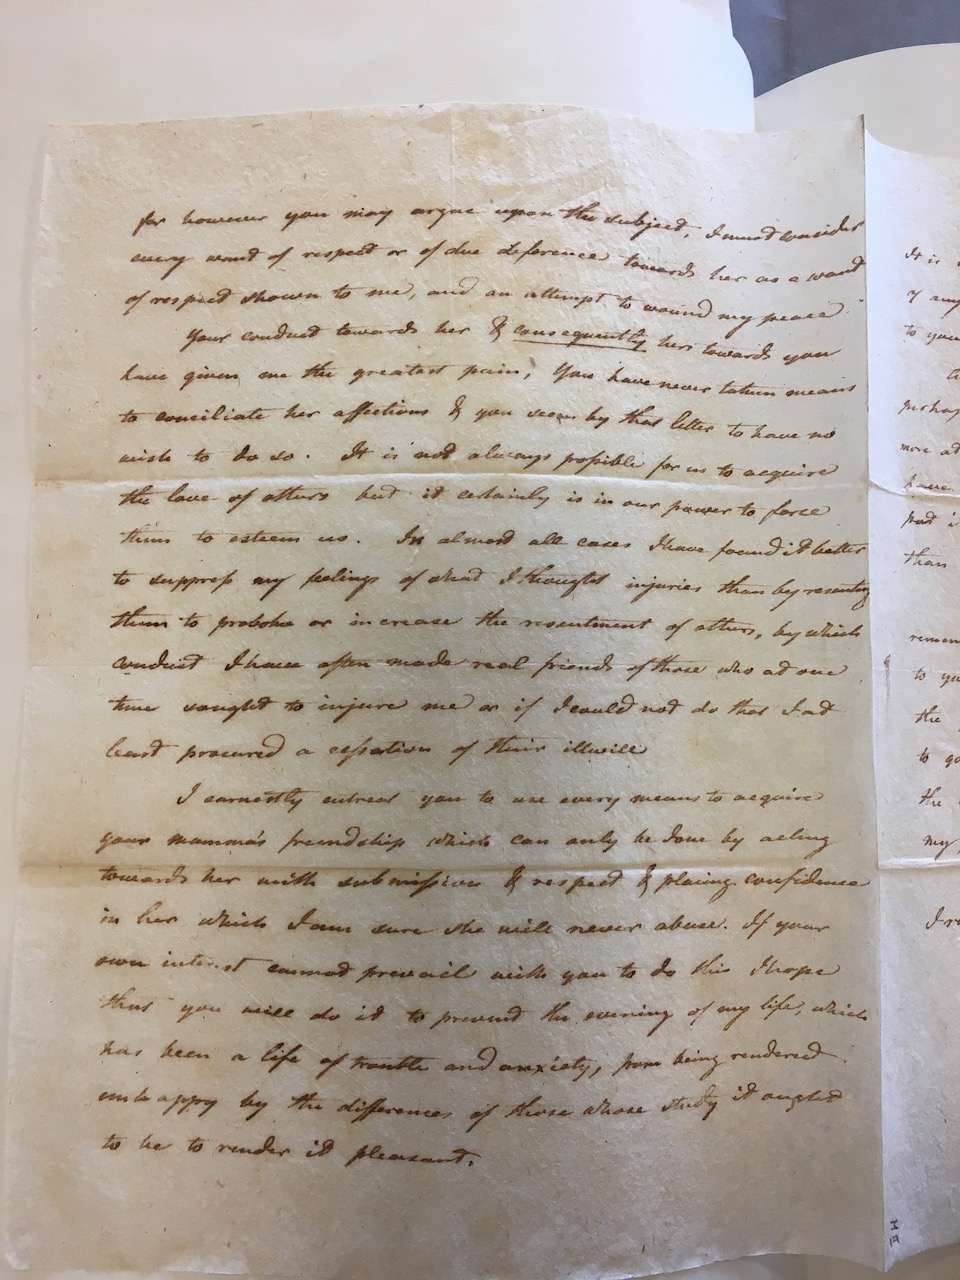 for however you may argue upon the subject, I must consider
every want of respect or of due deference towards her as a want
of respect shown to me, and an attempt to wound my peace.
Your conduct towards her & consequently hers towards you
have given me the greatest pain, You have never taken means
to conciliate her affections & you seem by that letter to have no
wish to do so. It is not always possible for us to acquire
the love of others but it certainly is in our power to force
them to esteem us. In almost all cases I have found it better
to suppress my feelings of what I thought injuries than by resenting
them to provoke or increase the resentment of others, by which
conduct I have often made real friends of those who at one
time sought to injure me or if I could not do that I at
least procured a cessation of their illwill
I earnestly entreat you to use every means to acquire
your mamma's freindship which can only be done by acting
towards her with submission & respect & placing confidence
in her which I am sure she will never abuse. If your
own interest cannot prevail with you to do this I hope
that you will do it to prevent the evening of my life, which
has been a life of trouble and anxiety, from being rendered
unhappy by the differences of those whose study it ought
to be to render it pleasant.
It is
of any
to you
perhap
more ad
have
put i
than
remem
to you
the
to
the
my